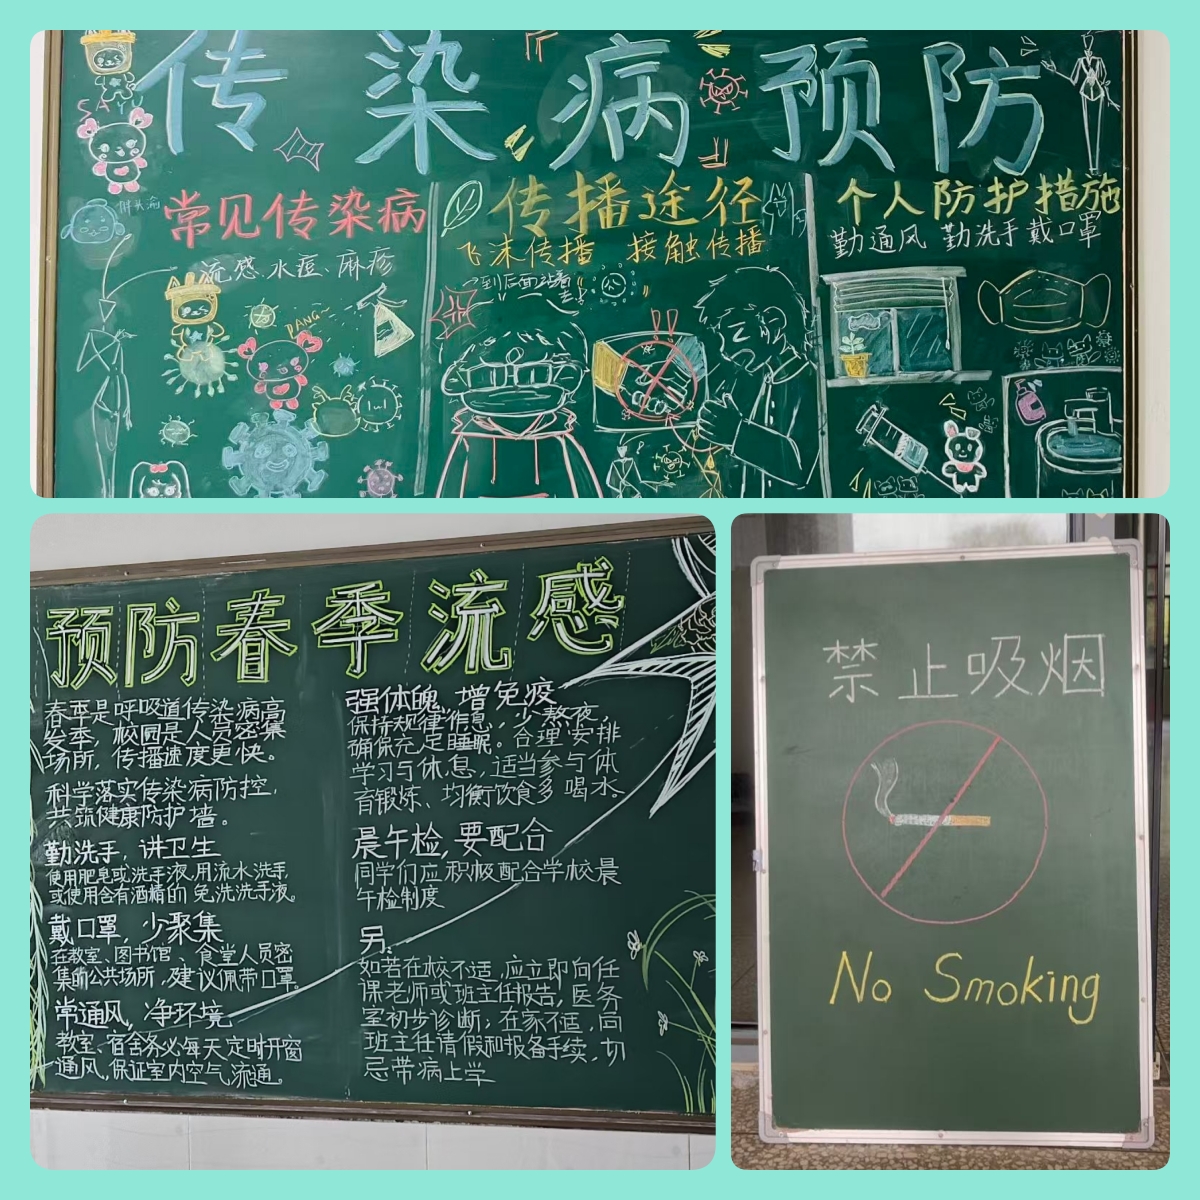 传染病预防
SAY
胖头渝
常见传染病
流感、水痘、麻疹
PANG~
传播途径
飞沫传播 接触传播
到后面站着
去!
个人防护措施
勤通风 勤洗手 戴口罩
预防春季流感
春季是呼吸道传染病高
发季,校园是人员密集
场所,传播速度更快。
科学落实传染病防控,
共筑健康防护墙。
勤洗手,讲卫生
使用肥皂或洗手液,用流水洗手,
或使用含有酒精的免洗洗手液。
戴口罩,少聚集
在教室、图书馆、食堂人员密
集的公共场所,建议佩带口罩。
常通风,净环境
教室、宿舍务必每天定时开窗
通风,保证室内空气流通。
强体魄,增免疫
保持规律作息,少熬夜,
确保充足睡眠。合理安排
学习与休息,适当参与体
育锻炼、均衡饮食多喝水。
晨午检,要配合
同学们应积极配合学校晨
午检制度
另:
如若在校不适,应立即向任
课老师或班主任报告,医务
室初步诊断;在家不适,向
班主任请假和报备手续,切
忌带病上学
禁止吸烟
No Smoking